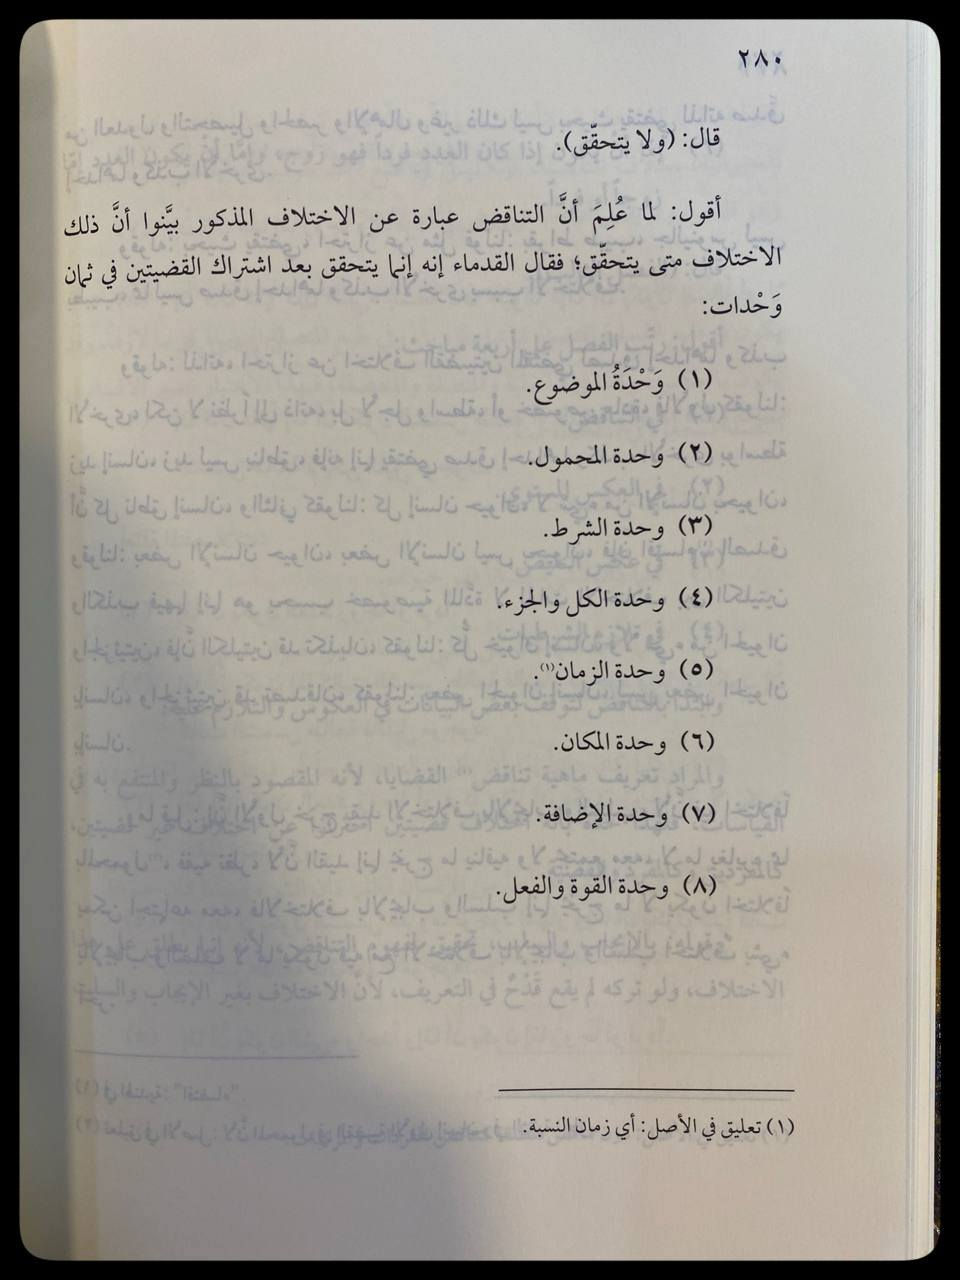 ٢٨٠
قال: (ولا يتحقّق).
أقول: لما عُلِمَ أنَّ التناقض عبارة عن الاختلاف المذكور بيَّنوا أنَّ ذلك
الاختلاف متى يتحقّق؛ فقال القدماء إنه إنما يتحقق بعد اشتراك القضيتين في ثمان
وَحْدات:
(١) وَحْدَةُ الموضوع.
(٢) وحدة المحمول.
(٣) وحدة الشرط.
(٤) وحدة الكل والجزء.
(٥) وحدة الزمان(١).
(٦) وحدة المكان.
(٧) وحدة الإضافة.
(٨) وحدة القوة والفعل.
(١) تعليق في الأصل: أي زمان النسبة.